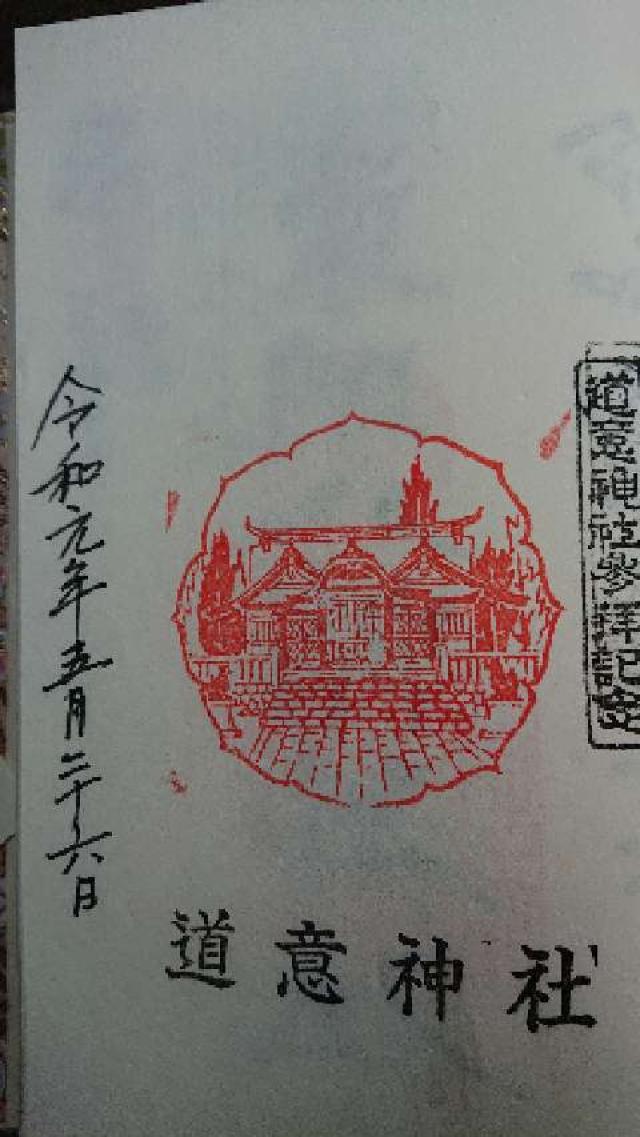 道意神社参拝記念
令和元年五月二十六日
道意神社